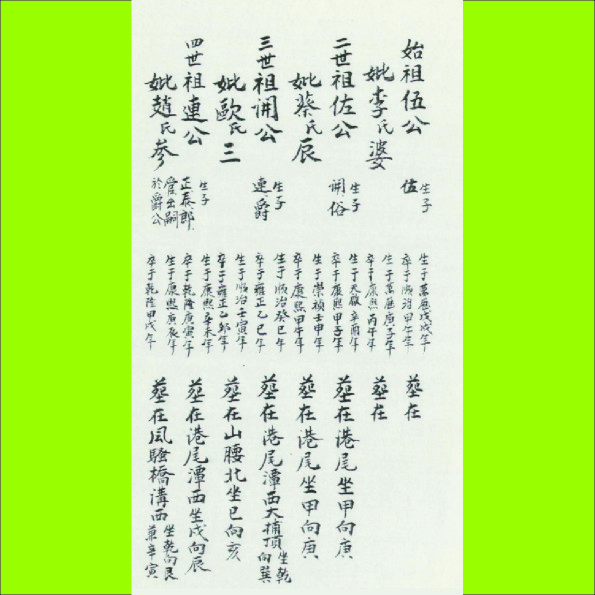 始祖伍公
妣李氏婆
二世祖佐公
妣蔡氏辰
三世祖開公
妣歐氏三
四世祖連公
妣趙氏參
生子
佐
生子
開俗
生子
連爵
生子
正泰郎
愛出嗣
於爵公
生于萬歷戊戌年
卒于順治甲午年
生于萬歷庚子年
卒于康熙丙午年
生于天啟辛酉年
卒于康熙甲子年
生于崇禎壬申年
卒于康熙甲午年
生于順治癸巳年
卒于雍正乙巳年
生于順治壬寅年
卒于雍正乙卯年
生于康熙辛未年
卒于乾隆庚寅年
生于康熙庚辰年
卒于乾隆甲戌年
塟在
塟在
塟在港尾坐甲向庚
塟在港尾坐甲向庚
塟在港尾潭西大埔頂坐乾向巽
塟在山腰北坐巳向亥
塟在港尾潭西坐戌向辰
塟在風騷橋溝西坐乾向艮
兼辛寅